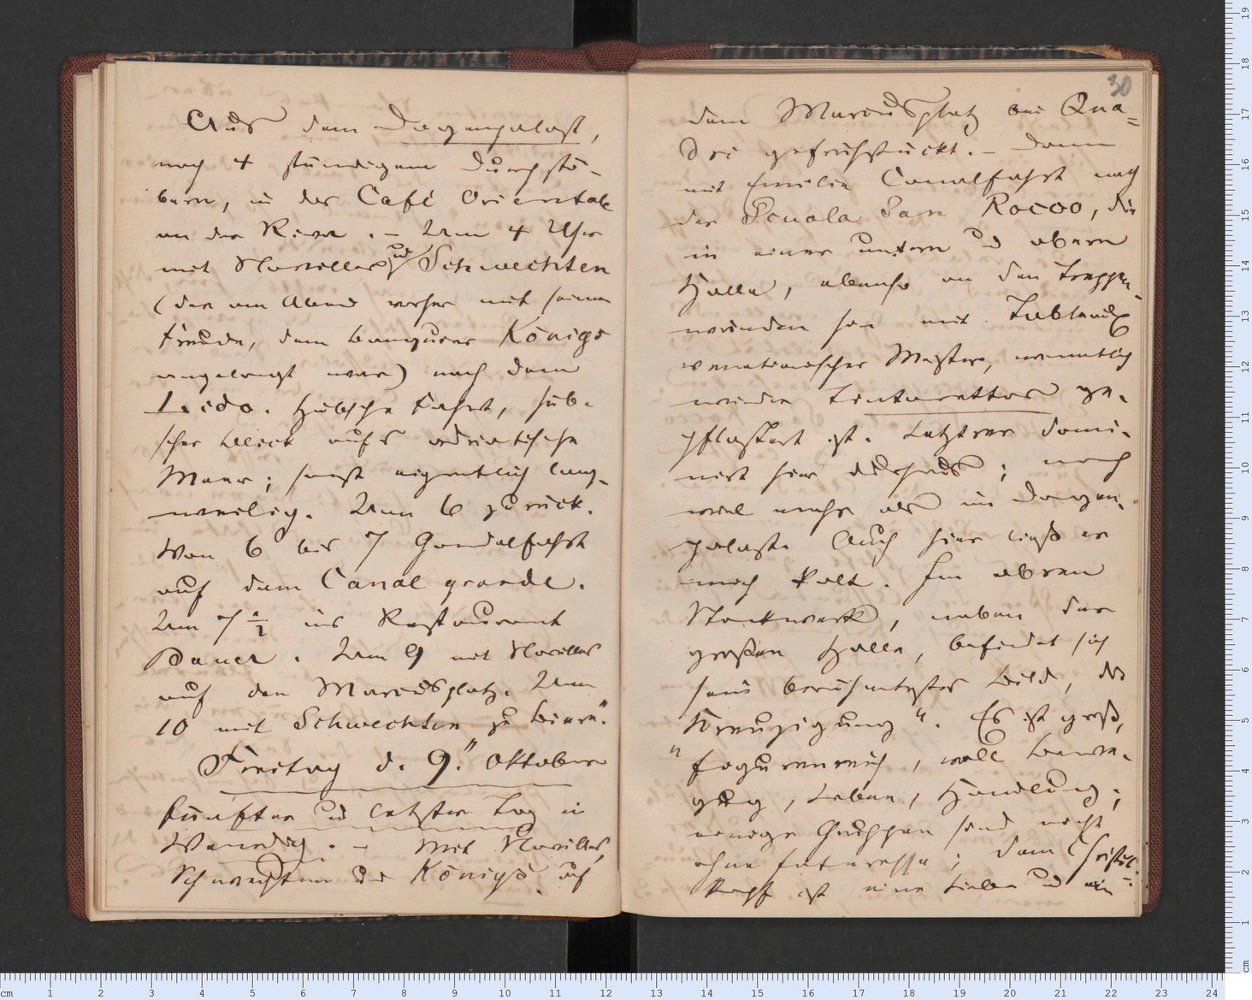 Aus dem Dogenpalast,
nach 4 stündigem Durchstö-
bern, in das Café Orientale
an der Riva. – Um 4 Uhr
mit Noviller und Schwechten
(der am Abend vorher mit seinem
Freunde, dem Banquier Königs
angelangt war) nach dem
Lido. Hübsche Fahrt, hüb-
scher Blick aufs adriatische
Meer; sonst eigentlich lang-
weilig. Um 6 zurück.
Von 6 bis 7 Gondelfahrt
auf dem Canal grande.
Um 7 ½ ins Restaurant
Bauer. Um 9 mit Noviller
auf den Marcusplatz. Um
10 mit Schwechten „zu Biere".
Freitag d. 9. Oktober
fünfter und letzter Tag in
Venedig. – Mit Noviller,
Schwechten und Königs auf
30
dem Marcusplatz bei Qua-
dri gefrühstückt. – Dann
mit Emilie Canalfahrt nach
der Scuola San Rocco, die
in einer untern und obern
Halle, ebenso an den Treppen-
wänden hin mit Tableaux
venetianischer Meister, namentlich
wieder Tintorettos ge-
pflastert ist. Letztrer domi-
nirt hier durchaus; noch
viel mehr als im Dogen-
palast. Auch hier ließ er
mich kalt. Im obren
Stockwerk, neben der
großen Halle, befindet sich
sein berühmtestes Bild, die
„Kreuzigung". Es ist groß,
figurenreich, voll Bewe-
gung, Leben, Handlung;
einige Gruppen sind nicht
ohne Interesse; dem Christus-
kopf ist eine Liebe und ein